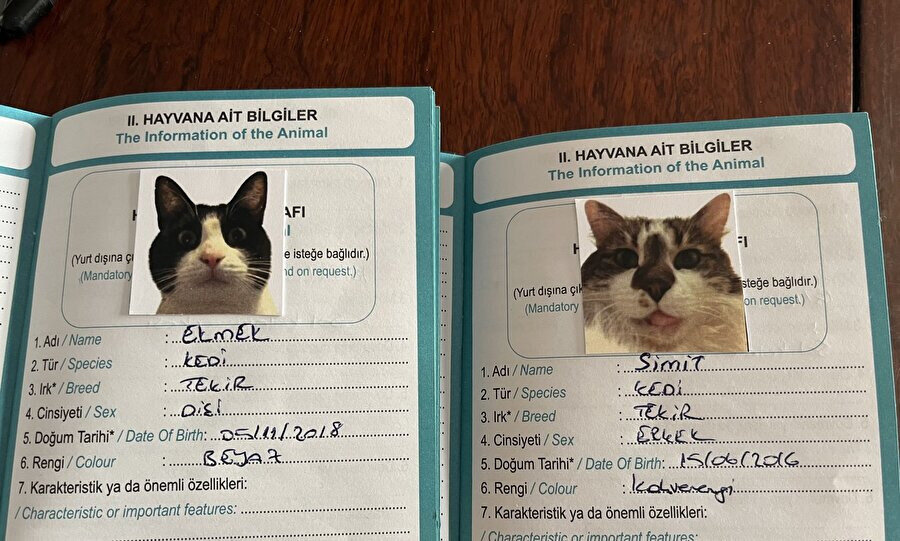 II. HAYVANA AİT BİLGİLER
The Information of the Animal
(Yurt dışına e isteğe bağlıdır.)
(Mandatory nd on request.)
1. Adı / Name : EKMEK
2. Tür / Species : KEDİ
3. Irk* / Breed : TEKİR
4. Cinsiyeti / Sex : DİŞİ
5. Doğum Tarihi* / Date Of Birth: 05/11/2018
6. Rengi / Colour : BEYAZ
7. Karakteristik ya da önemli özellikleri:
/ Characteristic or important features:
II. HAYVANA AİT BİLGİLER
The Information of the Animal
(Yurt dışına isteğe bağlıdır.)
(Mandatory on request.)
1. Adı / Name : SİMİT
2. Tür / Species : KEDİ
3. Irk* / Breed : TEKİR
4. Cinsiyeti / Sex : ERKEK
5. Doğum Tarihi* / Date Of Birth: 15/06/2016
6. Rengi / Colour : Kahverengi
7. Karakteristik ya da önemli özellikleri:
/ Characteristic or important features: